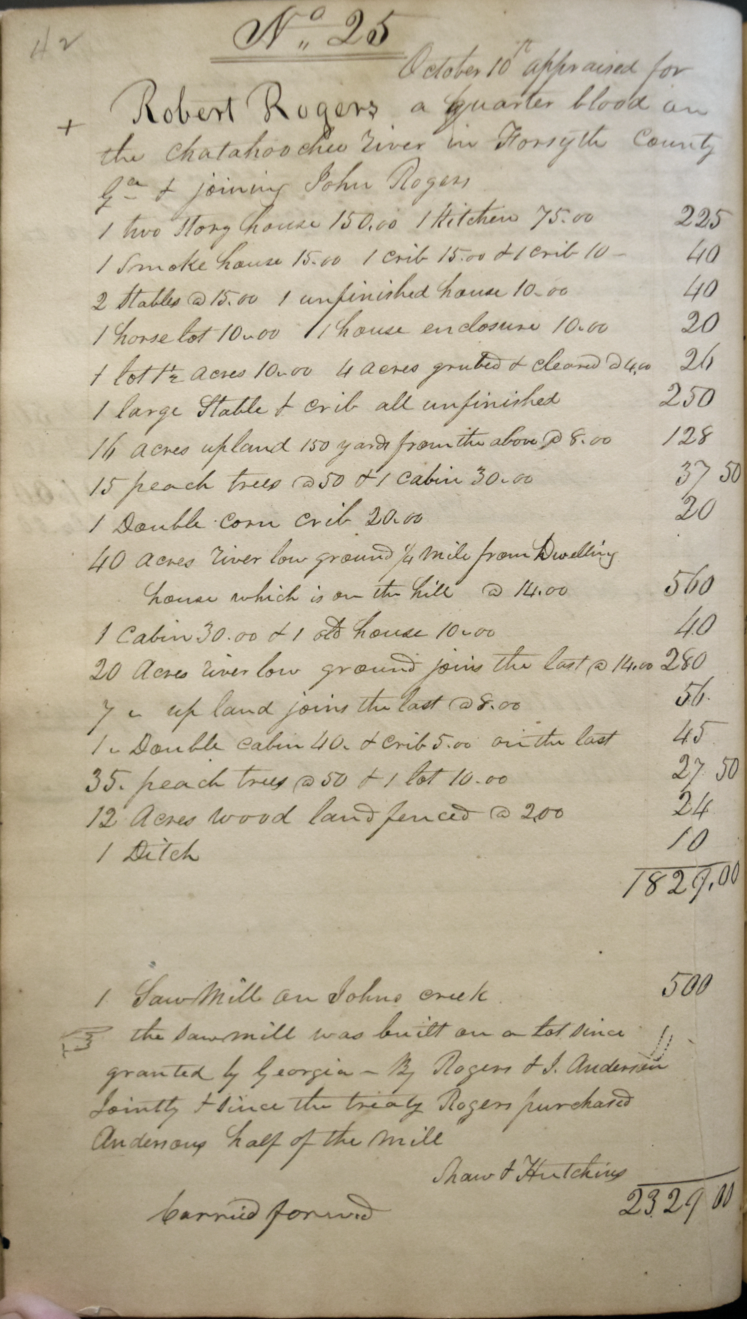 42
No 25
October 10th appraised for
+ Robert Rogers a quarter blood on
the Chatahoochee river in Forsyth County
Ga & joining John Rogers
1 two Story house 150.00 1 Kitchen 75.00 225
1 Smoke house 15.00 1 crib 15.00 & 1 crib 10- 40
2 Stables @ 15.00 1 unfinished house 10.00 40
1 horse lot 10.00 1 house enclosure 10.00 20
1 lot 1½ acres 10.00 4 acres grubed & cleared @ 4.00 26
1 large Stable & crib all unfinished 250
16 acres upland 150 yards from the above @ 8.00 128
15 peach trees @ 50 & 1 cabin 30.00 37 50
1 Double corn crib 20.00 20
40 acres river low ground ¼ mile from Dwelling
house which is on the hill @ 14.00 560
1 Cabin 30.00 & 1 old house 10.00 40
20 Acres river low ground joins the last @ 14.00 280
7 " up land joins the last @ 8.00 56
1 " Double cabin 40. & crib 5.00 on the last 45
35. peach trees @ 50 & 1 lot 10.00 27 50
12 Acres wood land fenced @ 2.00 24
1 Ditch 10
1829.00
1 Saw Mill on Johns creek 500
the sawmill was built on a lot since
granted by Georgia - By Rogers & J. Anderson
Jointly & since the treaty Rogers purchased
Andersons half of the mill
Shaw & Hutchins
Carried forward 2329 00